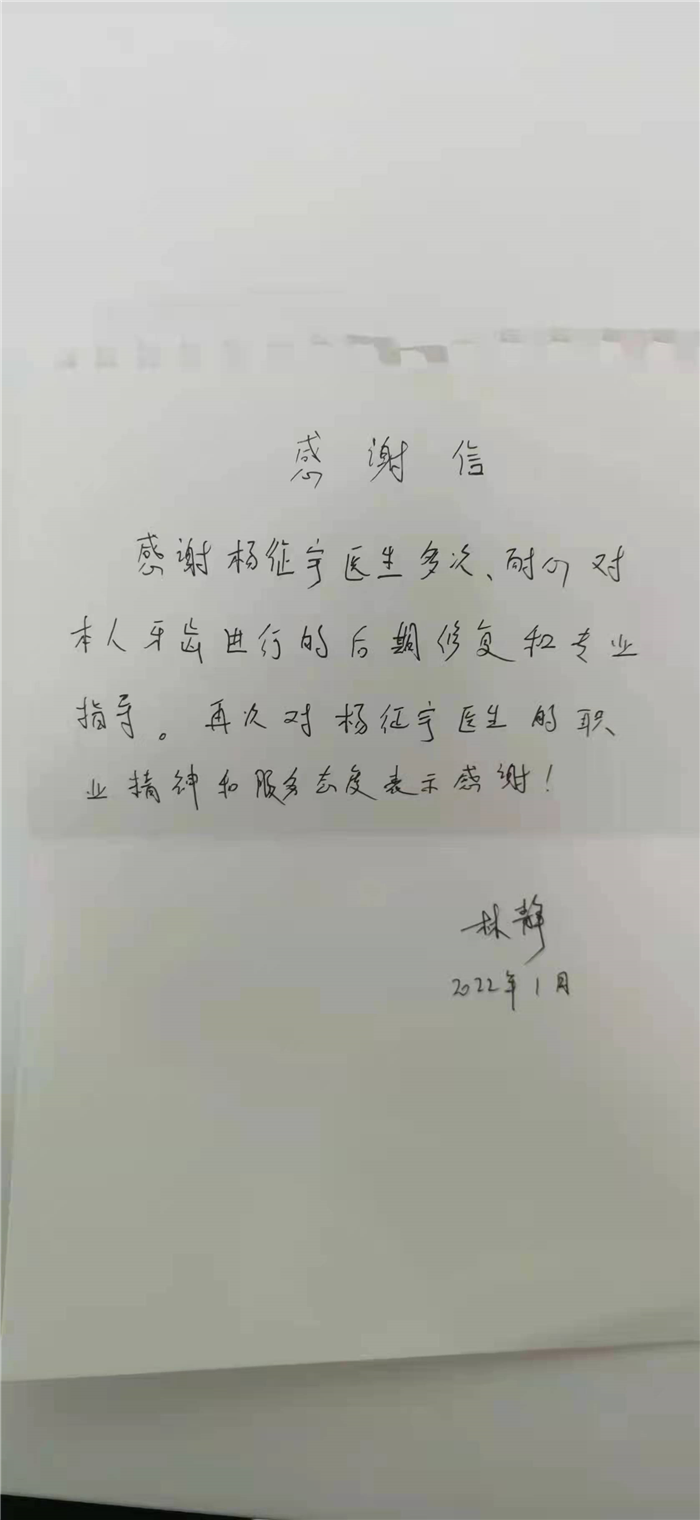 感谢信
感谢杨征宇医生多次、耐心对
本人牙齿进行的后期修复和专业
指导。再次对杨征宇医生的职
业精神和服务态度表示感谢！
林静
2022年1月